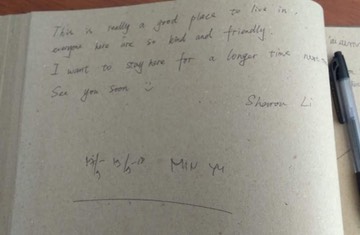 This is really a good place to live in.
everyone here are so kind and friendly.
I want to stay here for a longer time
See you soon
Sharon Li
MIN YU